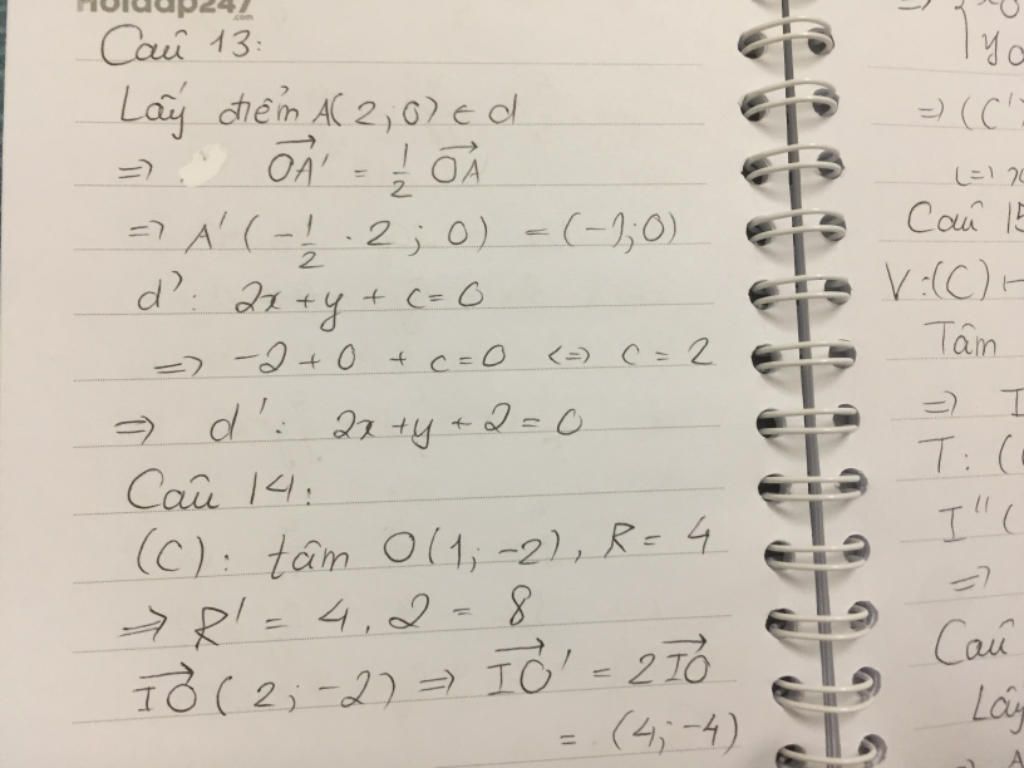 Hoidap247
.com
Câu 13:
Lấy điểm A(2;0) ∈ d
=> OA' = 1/2 OA
=> A'(-1/2 . 2; 0) = (-1;0)
d': 2x+y+c=0
=> -2+0+c=0 <=> c=2
=> d': 2x+y+2=0
Câu 14:
(C): tâm O(1;-2), R=4
=> R'=4.2=8
IO(2;-2) => IO'=2IO
= (4;-4)
=> (C'
Câu 15
V:(C)
Tâm
=> I
T: (
I''(
=>
Câu
Lấy